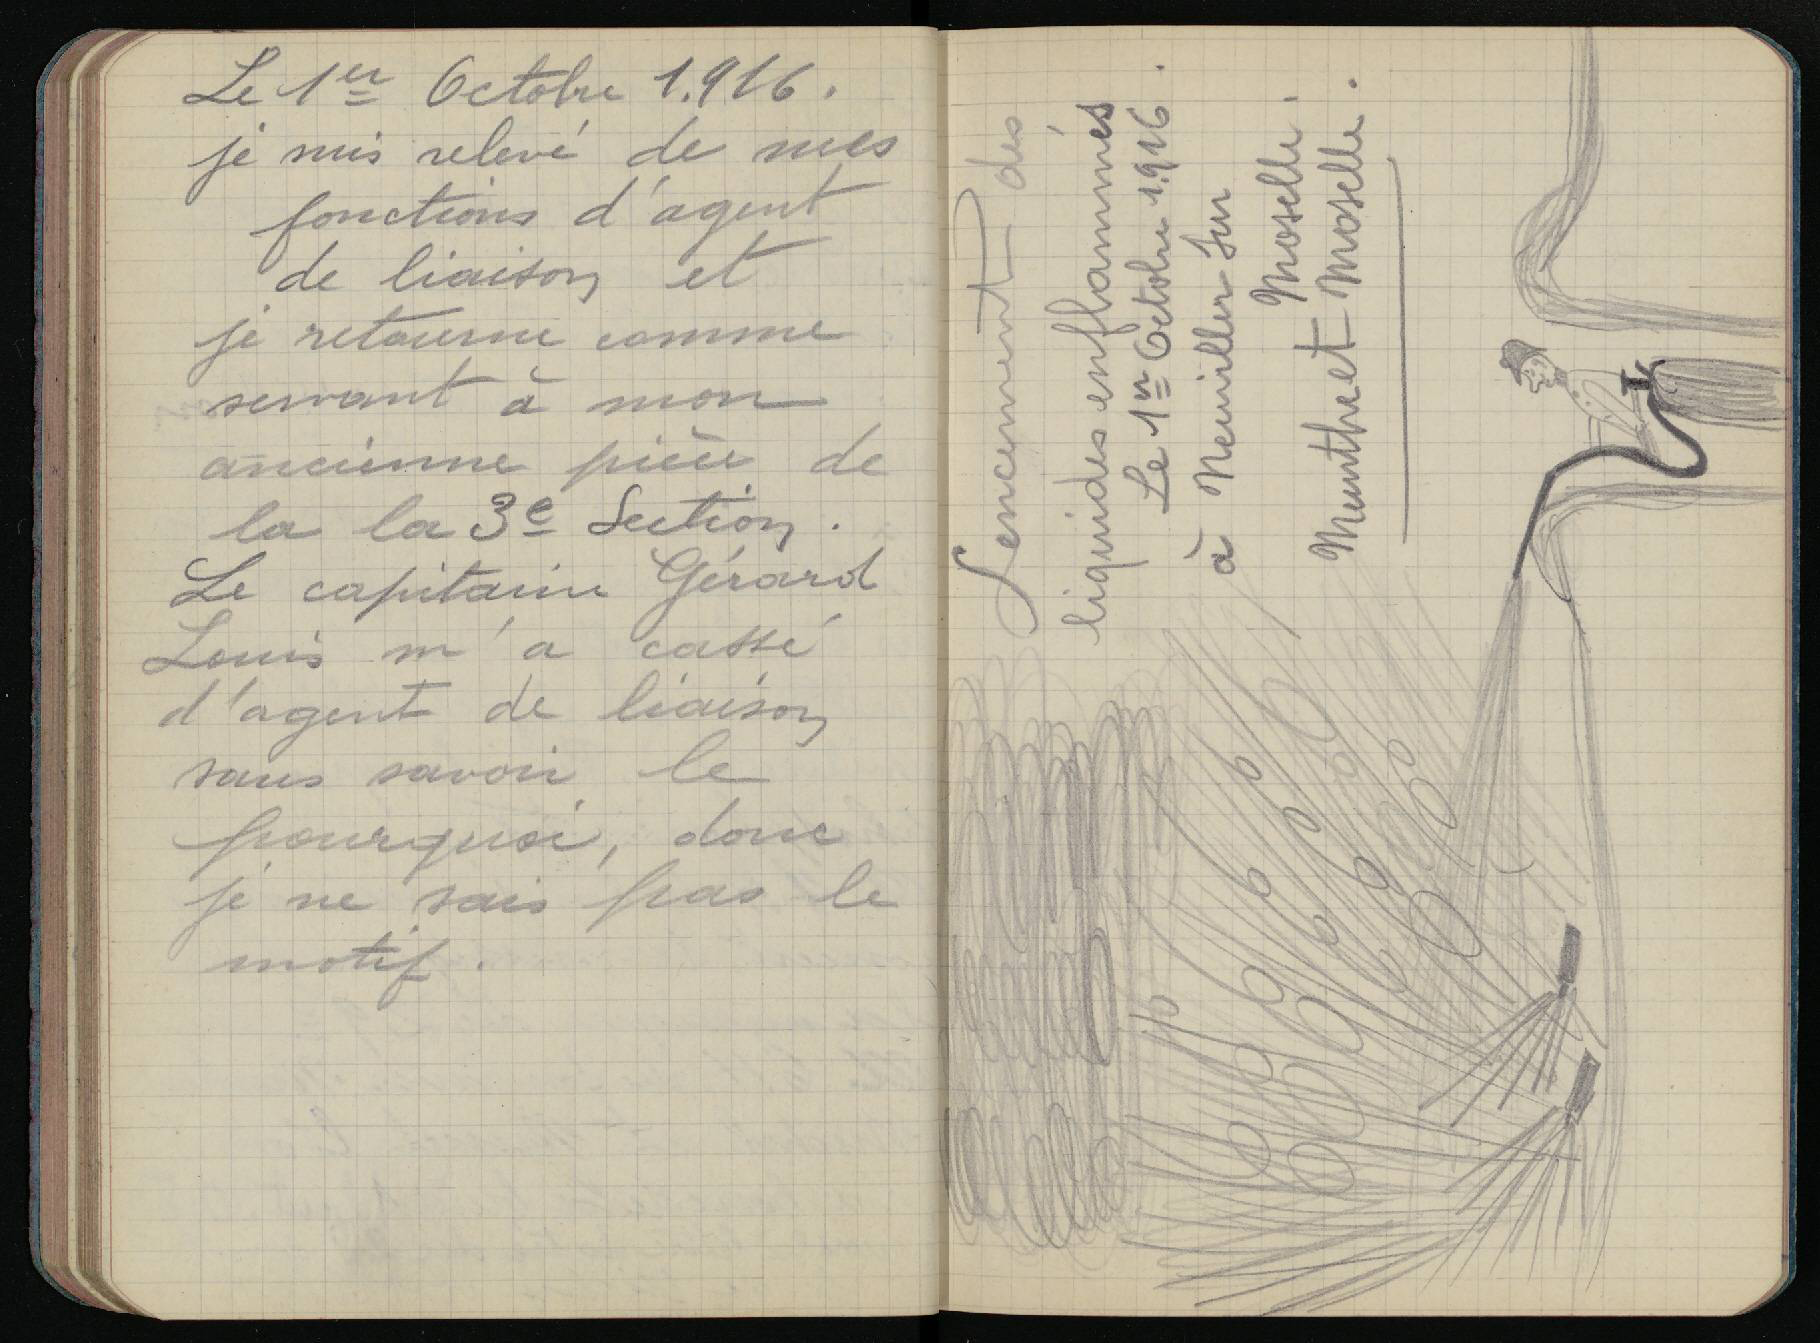 Le 1er Octobre 1.916.
je suis relevé de mes
fonctions d'agent
de liaison et
je retourne comme
servant à mon
ancienne pièce de
la la 3e Section.
Le capitaine Gérard
Louis m'a cassé
d'agent de liaison
sans savoir le
pourquoi, donc
je ne sais pas le
motif.
Lencement des
liquides enflammés.
Le 1er Octobre 1.916
à Neuviller Sur
Moselle.
Meurthe et Moselle.